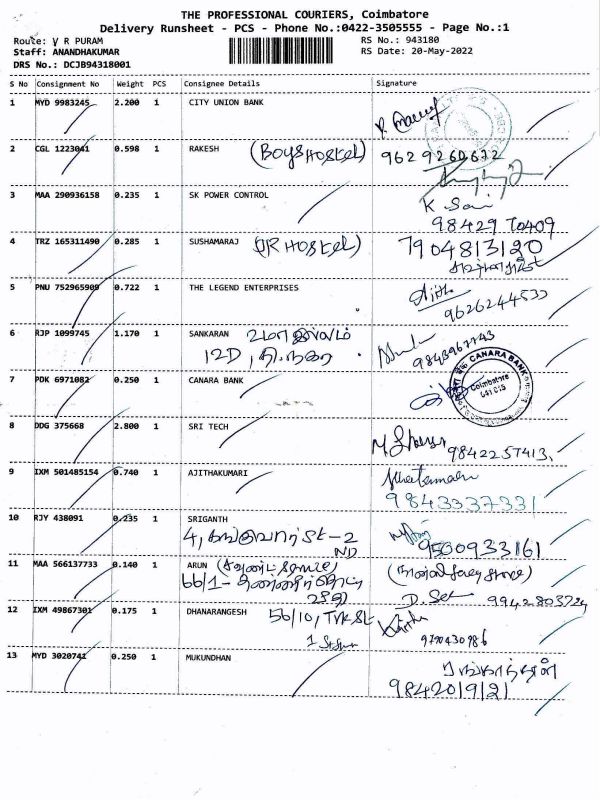 THE PROFESSIONAL COURIERS, Coimbatore
Delivery Runsheet - PCS - Phone No.:0422-3505555 - Page No.:1
Route: V R PURAM
RS No.: 943180
Staff: ANANDHAKUMAR
RS Date: 20-May-2022
DRS No.: DCJB94318001
S No Consignment No Weight PCS Consignee Details Signature
1 MYD 9983245 2.200 1 CITY UNION BANK
2 CGL 1223041 0.598 1 RAKESH (BOYS HOSTEL) 9629260672
3 MAA 290936158 0.235 1 SK POWER CONTROL K Sai
98429 70409
4 TRZ 165311490 0.285 1 SUSHAMARAJ (JR HOSTEL) 7904813120
5 PNU 752965909 0.722 1 THE LEGEND ENTERPRISES Ajith
9626244533
6 RJP 1099745 1.170 1 SANKARAN உமா இல்லம்
12D, தி.நகர் 9843967743
7 PDK 6971082 0.250 1 CANARA BANK
CANARA BANK
Coimbatore
8 DDG 375668 2.800 1 SRI TECH
9842257413
9 IXM 501485154 0.740 1 AJITHAKUMARI
9843337331
10 RJY 438091 0.235 1 SRIGANTH
4, St-2
ND 9500933161
11 MAA 566137733 0.140 1 ARUN
66/1-
9942803724
12 IXM 49867301 0.175 1 DHANARANGESH 56/10, TVK St
9790430986
13 MYD 3020741 0.250 1 MUKUNDHAN
9842019121